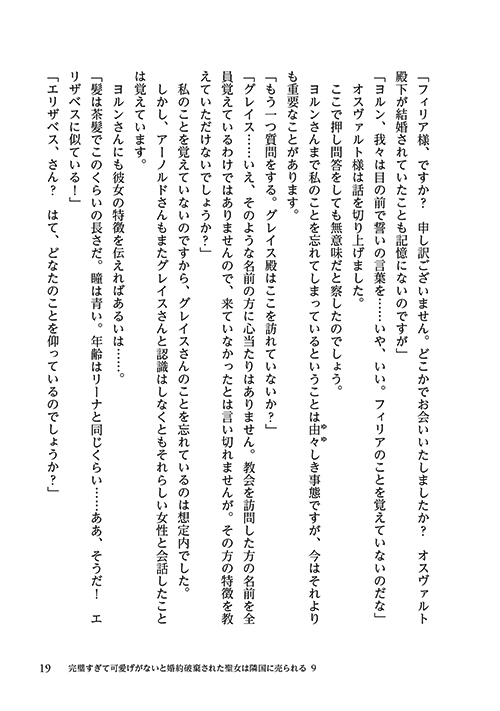 「フィリア様、ですか？　申し訳ございません。どこかでお会いいたしましたか？　オスヴァルト
殿下が結婚されていたことも記憶にないのですが」
「ヨルン、我々は目の前で誓いの言葉を……いや、いい。フィリアのことを覚えていないのだな」
オスヴァルト様は話を切り上げました。
ここで押し問答をしても無意味だと察したのでしょう。
ヨルンさんまで私のことを忘れてしまっているということは由々しき事態ですが、今はそれより
も重要なことがあります。
「もう一つ質問をする。グレイス殿はここを訪れていないか？」
「グレイス……いえ、そのような名前の方に心当たりはありません。教会を訪問した方の名前を全
員覚えているわけではありませんので、来ていなかったとは言い切れませんが。その方の特徴を教
えていただけないでしょうか？」
私のことを覚えていないのですから、グレイスさんのことを忘れているのは想定内でした。
しかし、アーノルドさんもまたグレイスさんと認識はしなくともそれらしい女性と会話したこと
は覚えています。
ヨルンさんにも彼女の特徴を伝えればあるいは……。
「髪は茶髪でこのくらいの長さだ。瞳は青い。年齢はリーナと同じくらい……ああ、そうだ！　エ
リザベスに似ている！」
「エリザベス、さん？　はて、どなたのことを仰っているのでしょうか？」
19　完璧すぎて可愛げがないと婚約破棄された聖女は隣国に売られる 9